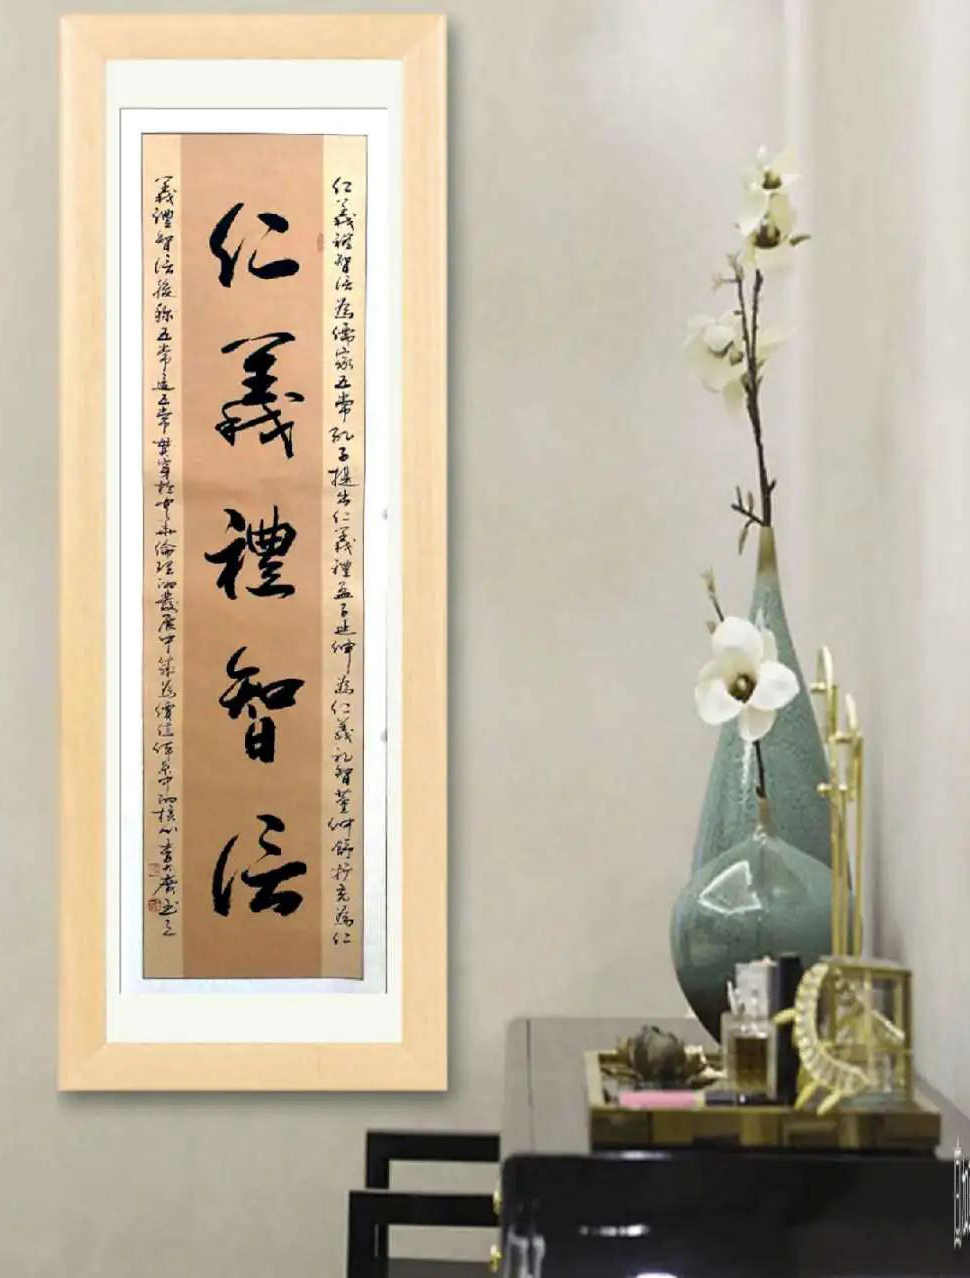 仁義禮智信為儒家五常孔子提出仁義禮孟子延伸為仁義礼智董仲舒扩充為仁
仁義禮智信
義禮智信後称五常這五常貫穿於中华倫理的發展中成為價值体系中的核心李大庆书